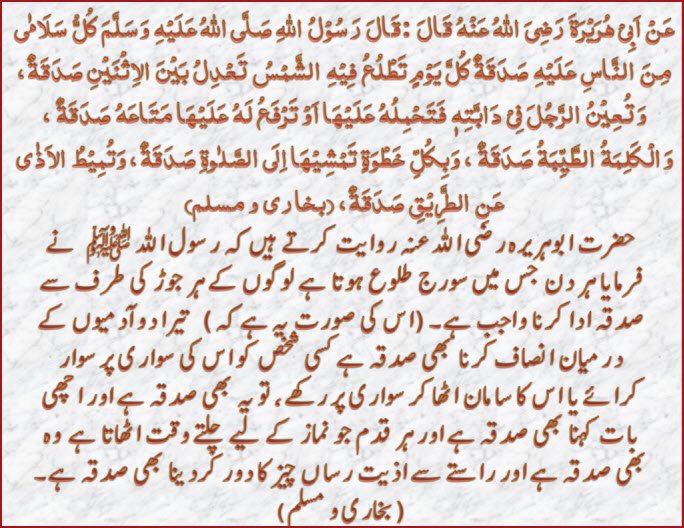 عَنْ اَبِیْ هُرَيْرَةَ رَضِیَ اللهُ عَنْهُ قَالَ :قَالَ رَسُوْلُ اللهِ صَلَّى اللهُ عَلَيْهِ وَسَلَّمَ كُلُّ سَلَامٰى
مِنَ النَّاسِ عَلَيْهِ صَدَقَةٌ كُلَّ يَوْمٍ تَطْلُعُ فِيْهِ الشَّمْسُ تَعْدِلُ بَيْنَ الْاِثْنَيْنِ صَدَقَةٌ،
وَتُعِيْنُ الرَّجُلَ فِیْ دَابَّتِهٖ فَتَحْمِلُهُ عَلَيْهَا اَوْ تَرْفَعُ لَهُ عَلَيْهَا مَتَاعَهُ صَدَقَةٌ ،
وَالْكَلِمَةُ الطَّيِّبَةُ صَدَقَةٌ ، وَبِكُلِّ خَطْوَةٍ تَمْشِيْهَا اِلَى الصَّلٰوةِ صَدَقَةٌ ، وَتُمِيْطُ الْاَذٰى
عَنِ الطَّرِيْقِ صَدَقَةٌ، (بخاری و مسلم)
حضرت ابوہریرہ رضی اللہ عنہ روایت کرتے ہیں کہ رسول اللہ ﷺ نے
فرمایا ہر دن جس میں سورج طلوع ہوتا ہے لوگوں کے ہر جوڑ کی طرف سے
صدقہ ادا کرنا واجب ہے۔ (اس کی صورت یہ ہے کہ ) تیرا دو آدمیوں کے
درمیان انصاف کرنا بھی صدقہ ہے کسی شخص کو اس کی سواری پر سوار
کرائے یا اس کا سامان اٹھا کر سواری پر رکھے، تو یہ بھی صدقہ ہے اور اچھی
بات کہنا بھی صدقہ ہے اور ہر قدم جو نماز کے لیے چلتے وقت اٹھاتا ہے وہ
بھی صدقہ ہے اور راستے سے اذیت رساں چیز کا دور کر دینا بھی صدقہ ہے۔
(بخاری و مسلم)